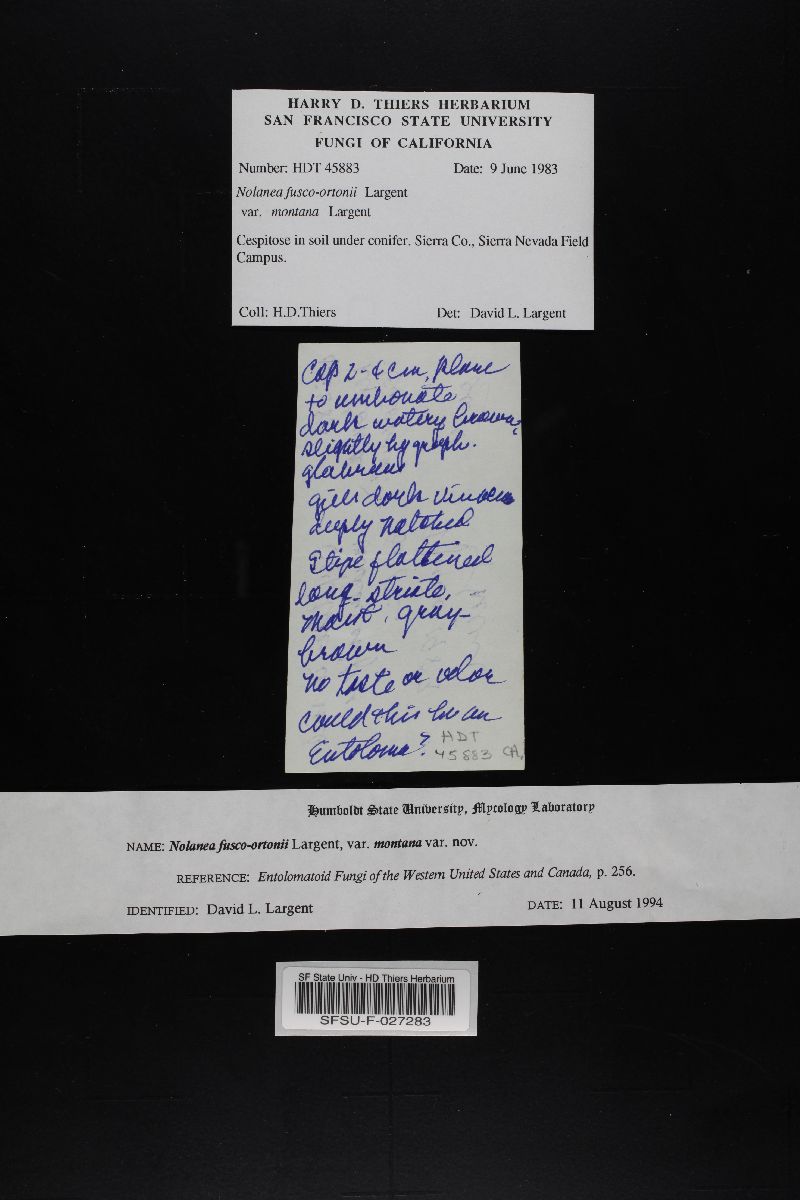 HARRY D. THIERS HERBARIUM
SAN FRANCISCO STATE UNIVERSITY
FUNGI OF CALIFORNIA
Number: HDT 45883 Date: 9 June 1983
Nolanea fusco-ortonii Largent
var. montana Largent
Cespitose in soil under conifer. Sierra Co., Sierra Nevada Field
Campus.
Coll: H.D.Thiers Det: David L. Largent
Cap 2-4 cm, plane
to umbonate
dark watery brown,
slightly hygroph.
glabrous
gills dark
deeply notched
Stipe flattened
long-striate,
moist, gray-
brown
no taste or odor
could this be an
Entoloma?
HDT
45883 CA.
Humboldt State University, Mycology Laboratory
NAME: Nolanea fusco-ortonii Largent, var. montana var. nov.
REFERENCE: Entolomatoid Fungi of the Western United States and Canada, p. 256.
IDENTIFIED: David L. Largent DATE: 11 August 1994
SF State Univ - HD Thiers Herbarium
SFSU-F-027283